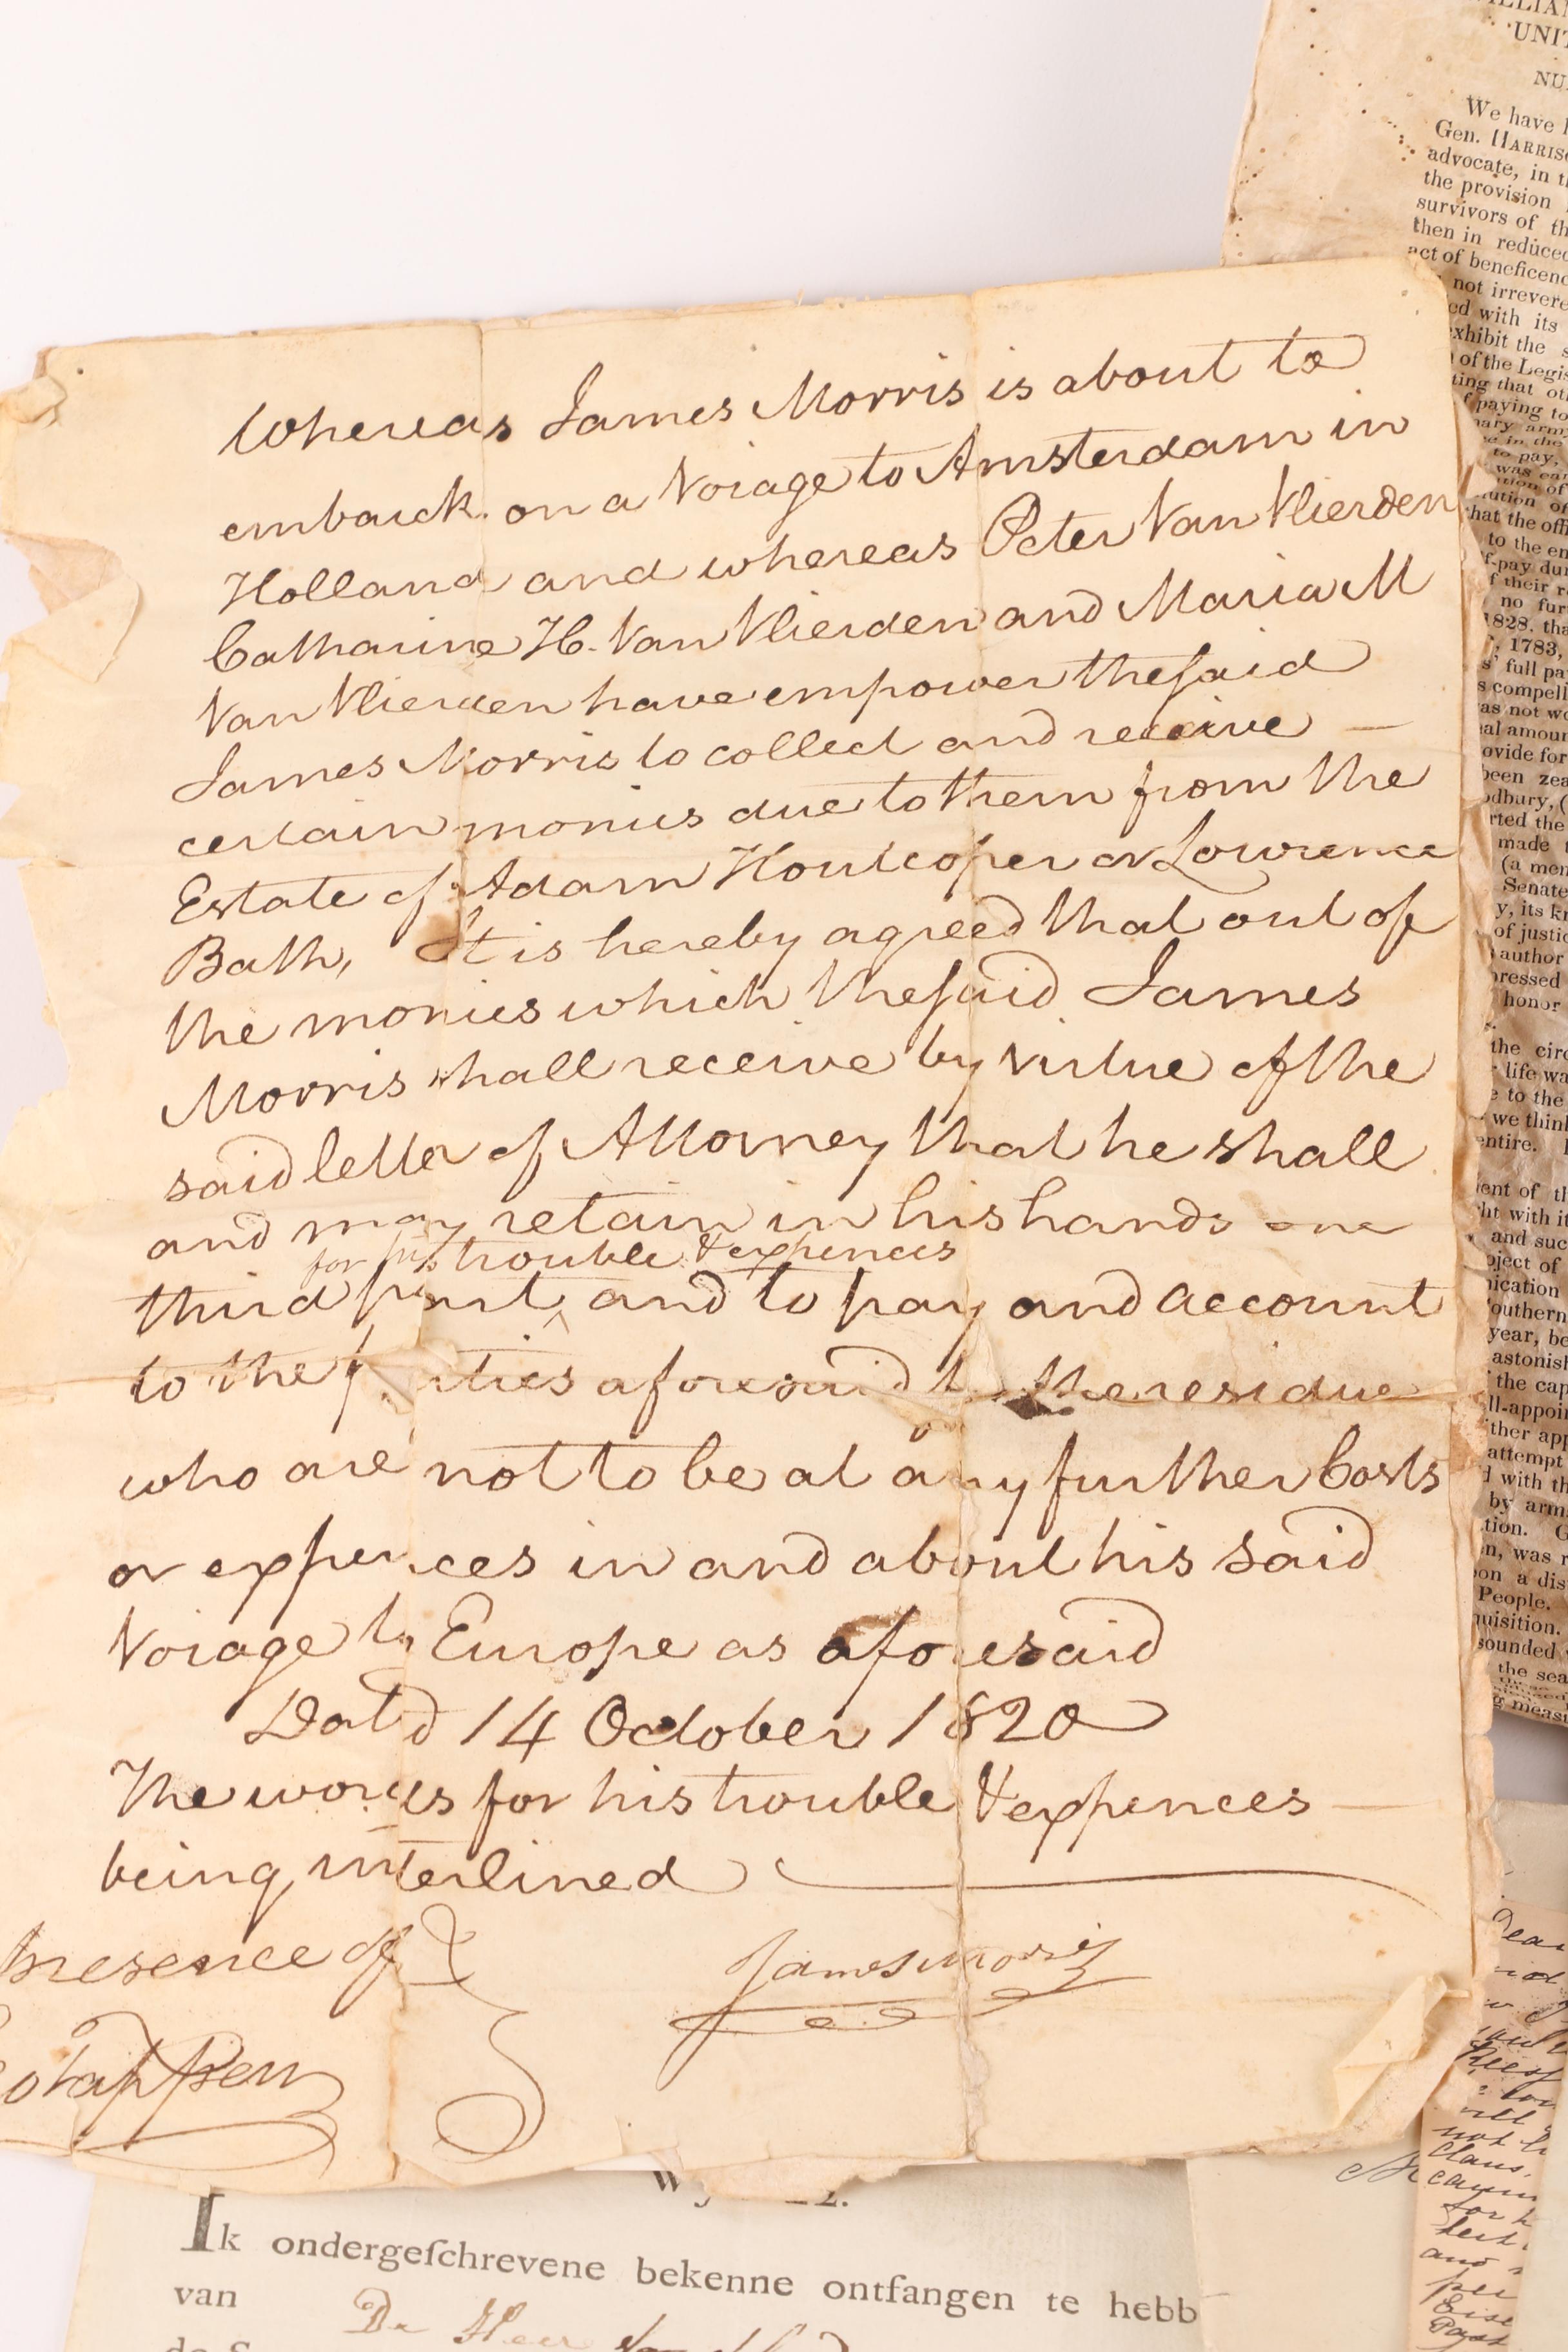 Whereas James Morris is about to
embarck on a Voiage to Amsterdam in
Holland and whereas Peter Van Vlierden
Catharine H. Van Vlierden and Maria M
Van Vlierden have empower the said
James Morris to collect and receive —
certain monies due to them from the
Estate of Adam Houtcoper or Lowrence
Bath, It is hereby agreed that out of
the monies which the said James
Morris shall receive by virtue of the
said letter of Attorney that he shall
and may retain in his hands one
for his trouble & expences
third part ^ and to pay and account
to the parties aforesaid the residue
who are not to be at any further Costs
or expences in and about his said
Voiage to Europe as aforesaid
Dat'd 14 October 1820
The words for his trouble & expences —
being interlined
presence of
James Morris
UNIT
NU
We have
Gen. HARRIS
advocate, in
the provision
survivors of th
then in reduced
act of beneficenc
not irrevere
ed with its
exhibit the s
of the Legis
ting that ot
paying to
to pay,
hat the offi
to the en
f-pay dur
f their r
no fur
1828. tha
1783,
full pa
s compell
as not wo
al amoun
ovide for
been zea
dbury, (
rted the
made t
(a mem
Senate
y, its kn
of justic
author
pressed
honor
the circ
life wa
e to the
we think
entire.
ent of th
ht with it
and suc
bject of
ication
outhern
year, be
astonish
the cap
ll-appoin
ther app
attempt
d with th
by arm
tion. G
n, was r
on a dis
People.
quisition.
sounded
the sea
g meas
Ik ondergeſchrevene bekenne ontfangen te hebb
van De Heer